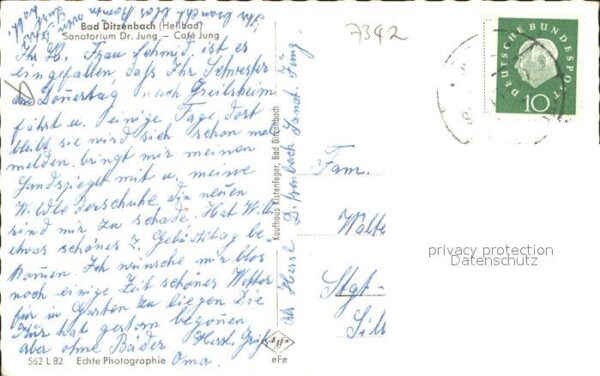 Bad Ditzenbach (Heilbad)
Sanatorium Dr. Jung - Café Jung
Ihr Lb. Frau Schmid, ist es
eingefallen, dass Ihr Schwester
am Donertag nach Greilsheim
fährt u. einige Tage dort
bleibt sie wird sich schon mal
melden. bringt mir meinen
Handspiegel mit u. meine
Wildlederschuhe, die neuen
sind mir zu schade. Hat Willi
etwas schönes z. Gebürtstag be
kommen. Ich wünsche mir blos
noch einige Zeit schönes Wetter
für in Garten zu liegen Die
Kur hat gestern begonen
aber ohne Bäder Herzl. Grüße
Oma.
562 L 82 Echte Photographie
Kaufhaus Kistenfeger, Bad Ditzenbach
eFe
7392
DEUTSCHE BUNDESPOST
10
Fam.
Walte
Stgt-
Silb
privacy protection
Datenschutz